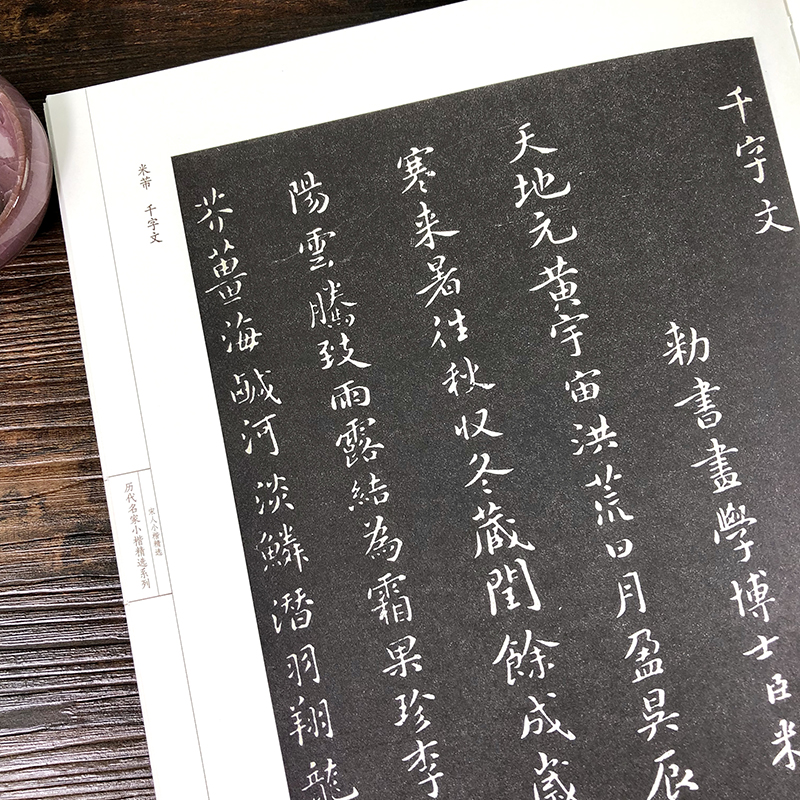 千字文
勅書畫學博士臣米
天地元黄宇宙洪荒日月盈昃辰
寒来暑往秋収冬蔵閏餘成歲
陽雲騰致雨露結為霜果珍李
芥薑海鹹河淡鱗潛羽翔龍
米芾 千字文
宋人小楷精选
历代名家小楷精选系列